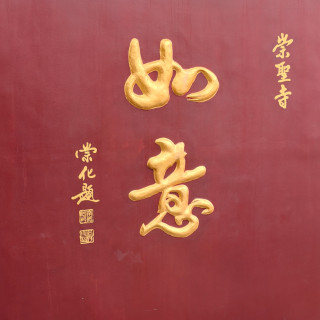 崇聖寺
如意
崇化題